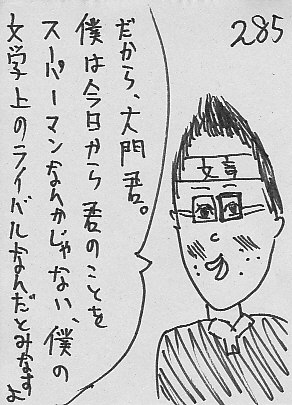 285
だから、大門君。
僕は今日から君のことを
スーパーマンなんかじゃない、僕の
文学上のライバルなんだとみなすよ
文章